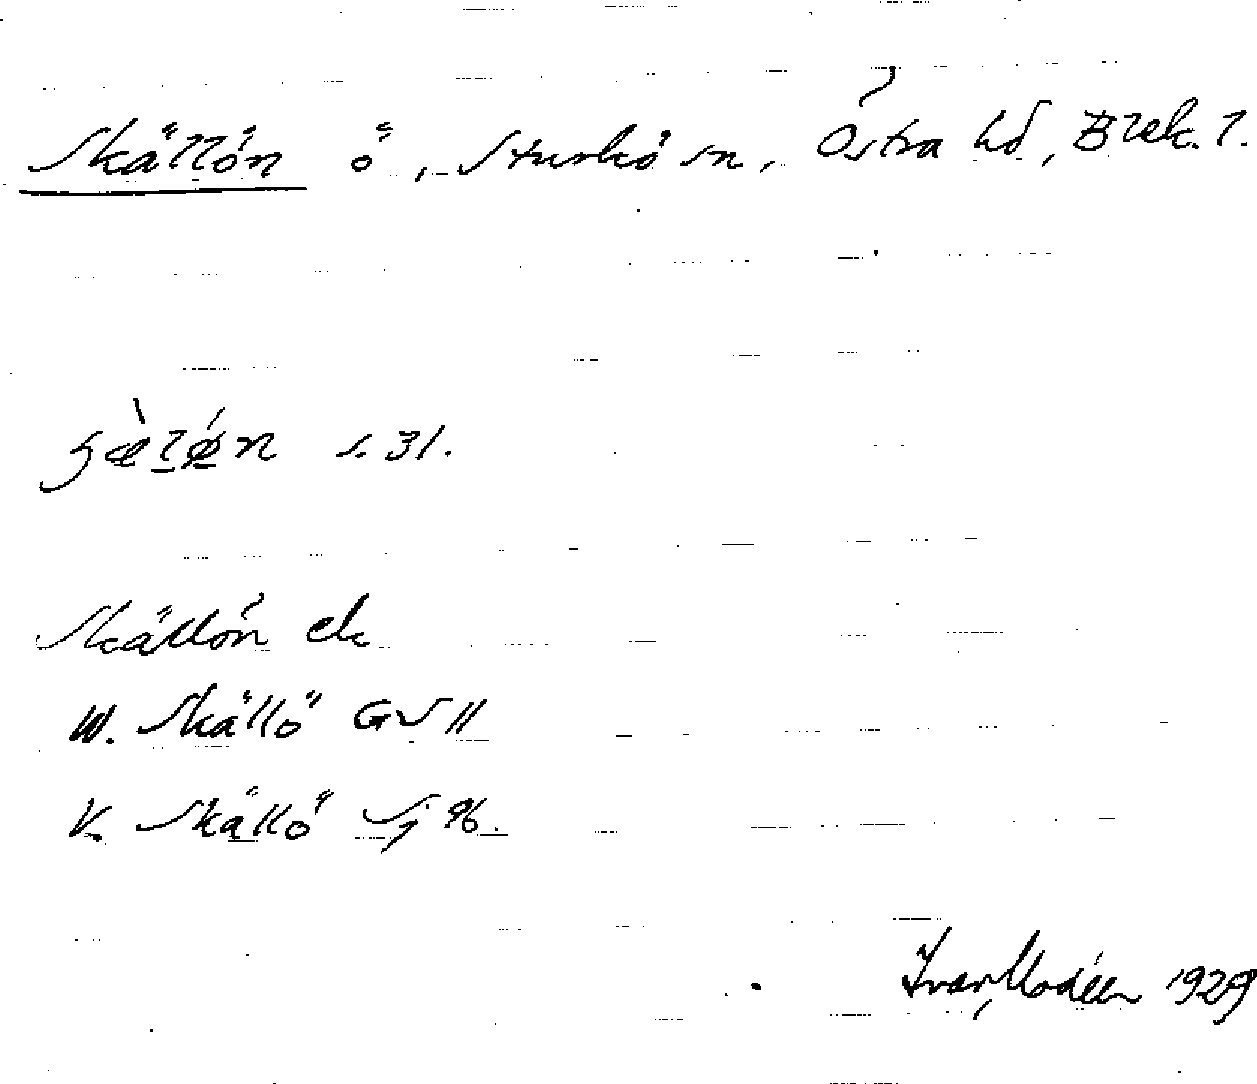 Skällön ö, Sturkö sn, Östra hd, Blek. l.
s. 31.
Skällön ek
W. Skällö GV 11
V. Skällö Sj 96.
Ivar Modéer 1929